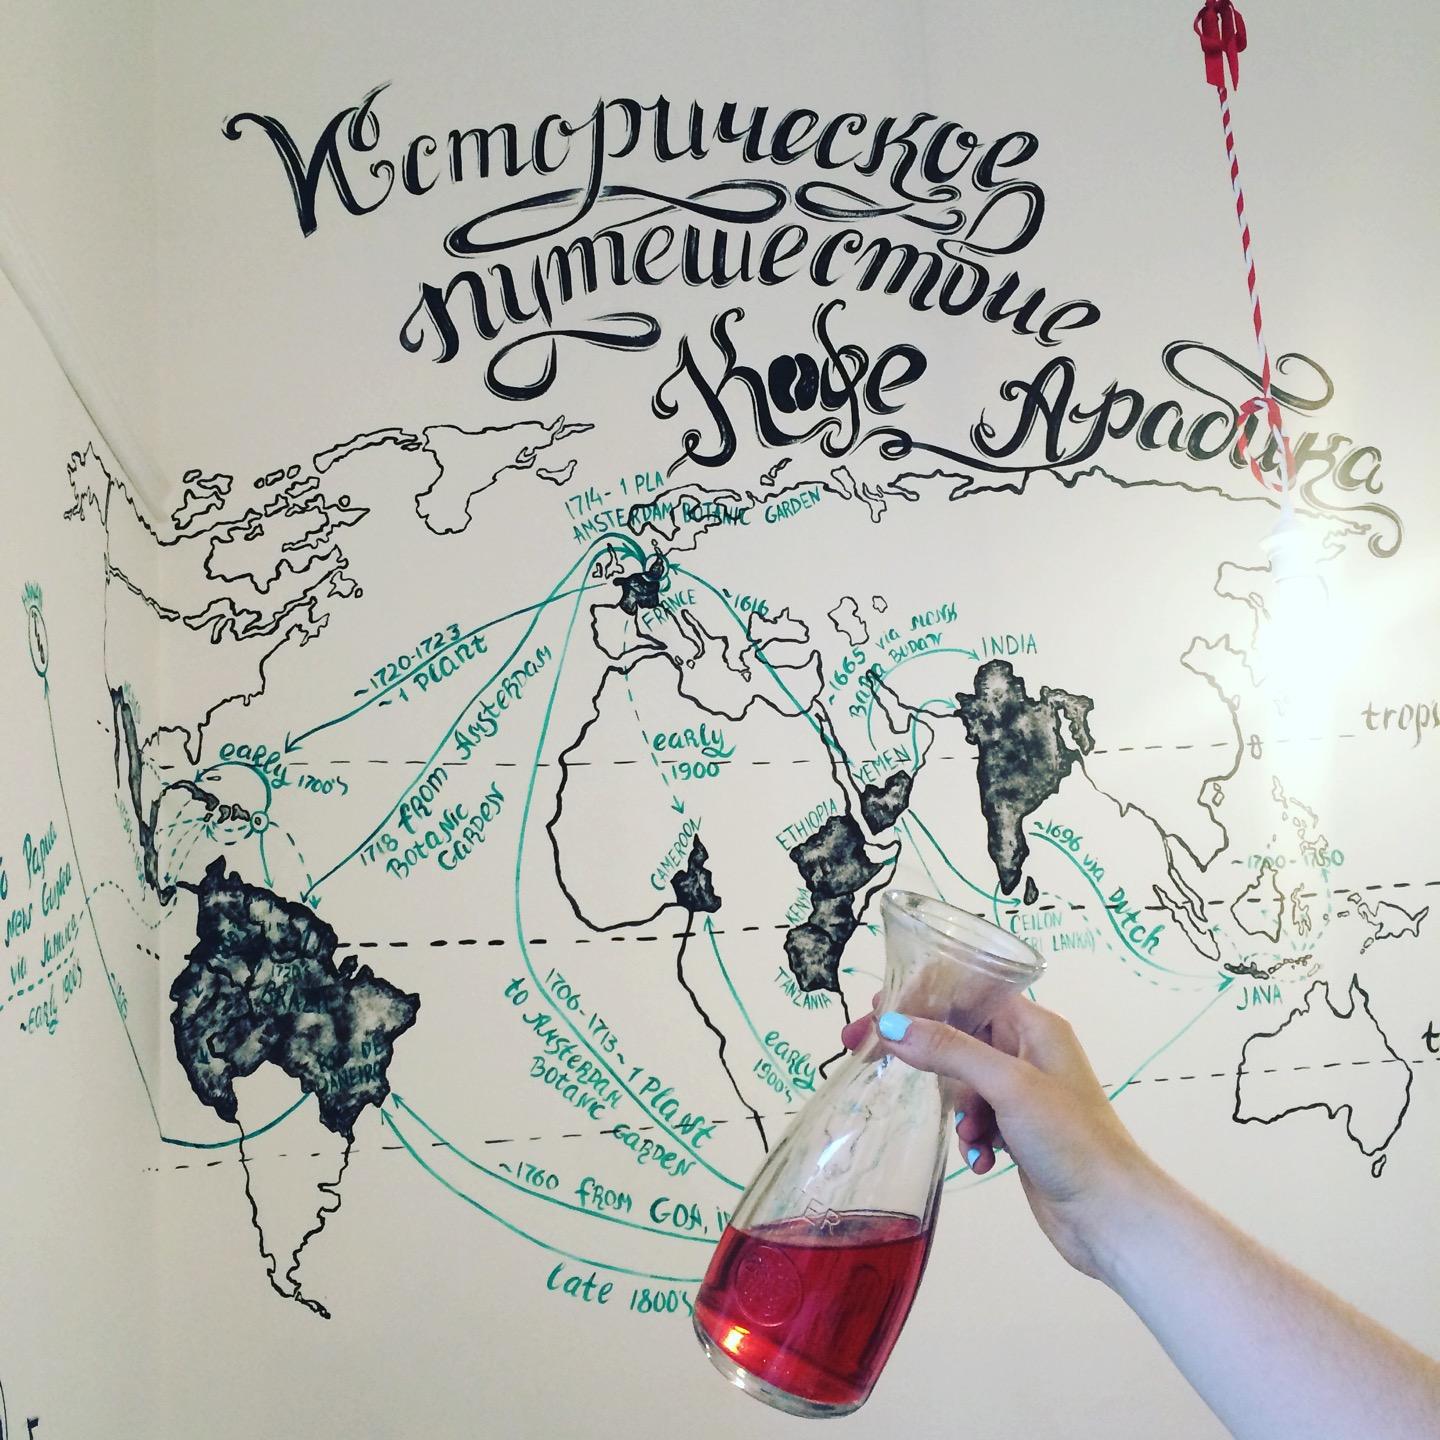 Историческое
путешествие
Кофе Арабика
1714 - 1 PLA
AMSTERDAM BOTANIC GARDEN
FRANCE
~1616
~1720-1723
~1 PLANT
~1665 via MONK
BABA BUDAN
INDIA
trops
early 1700's
1718 from Amsterdam
Botanic
GARDEN
early
1900
YEMEN
ETHIOPIA
CAMEROON
KENYA
TANZANIA
~1696 via Dutch
CEILON
(SRI LANKA)
JAVA
Papua
New Guinea
via Jamaica
~Early 1900's
BRA
RIO DE
JANEIRO
1706-1713- ~1 PLANT
to AMSTERDAM
BOTANIC GARDEN
early
1900's
~1760 from GOA, I
late 1800's
ER